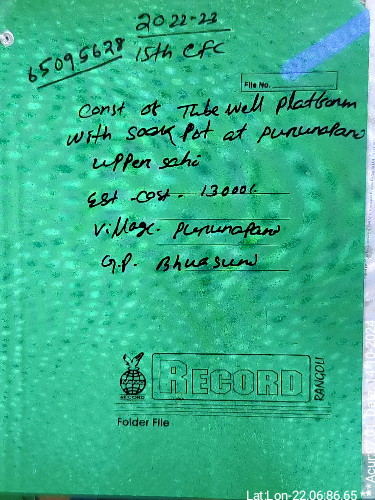 2022-23
65095628 15th CFC
File No.
Const of Tube well Platform
with Soak Pot at Purunapani
upper sahi
Est -Cost - 13000/-
Village - Purunapani
G.P. Bhuasuni
RECORD
RECORD
Folder File
Lat:Lon-22.06:86.65